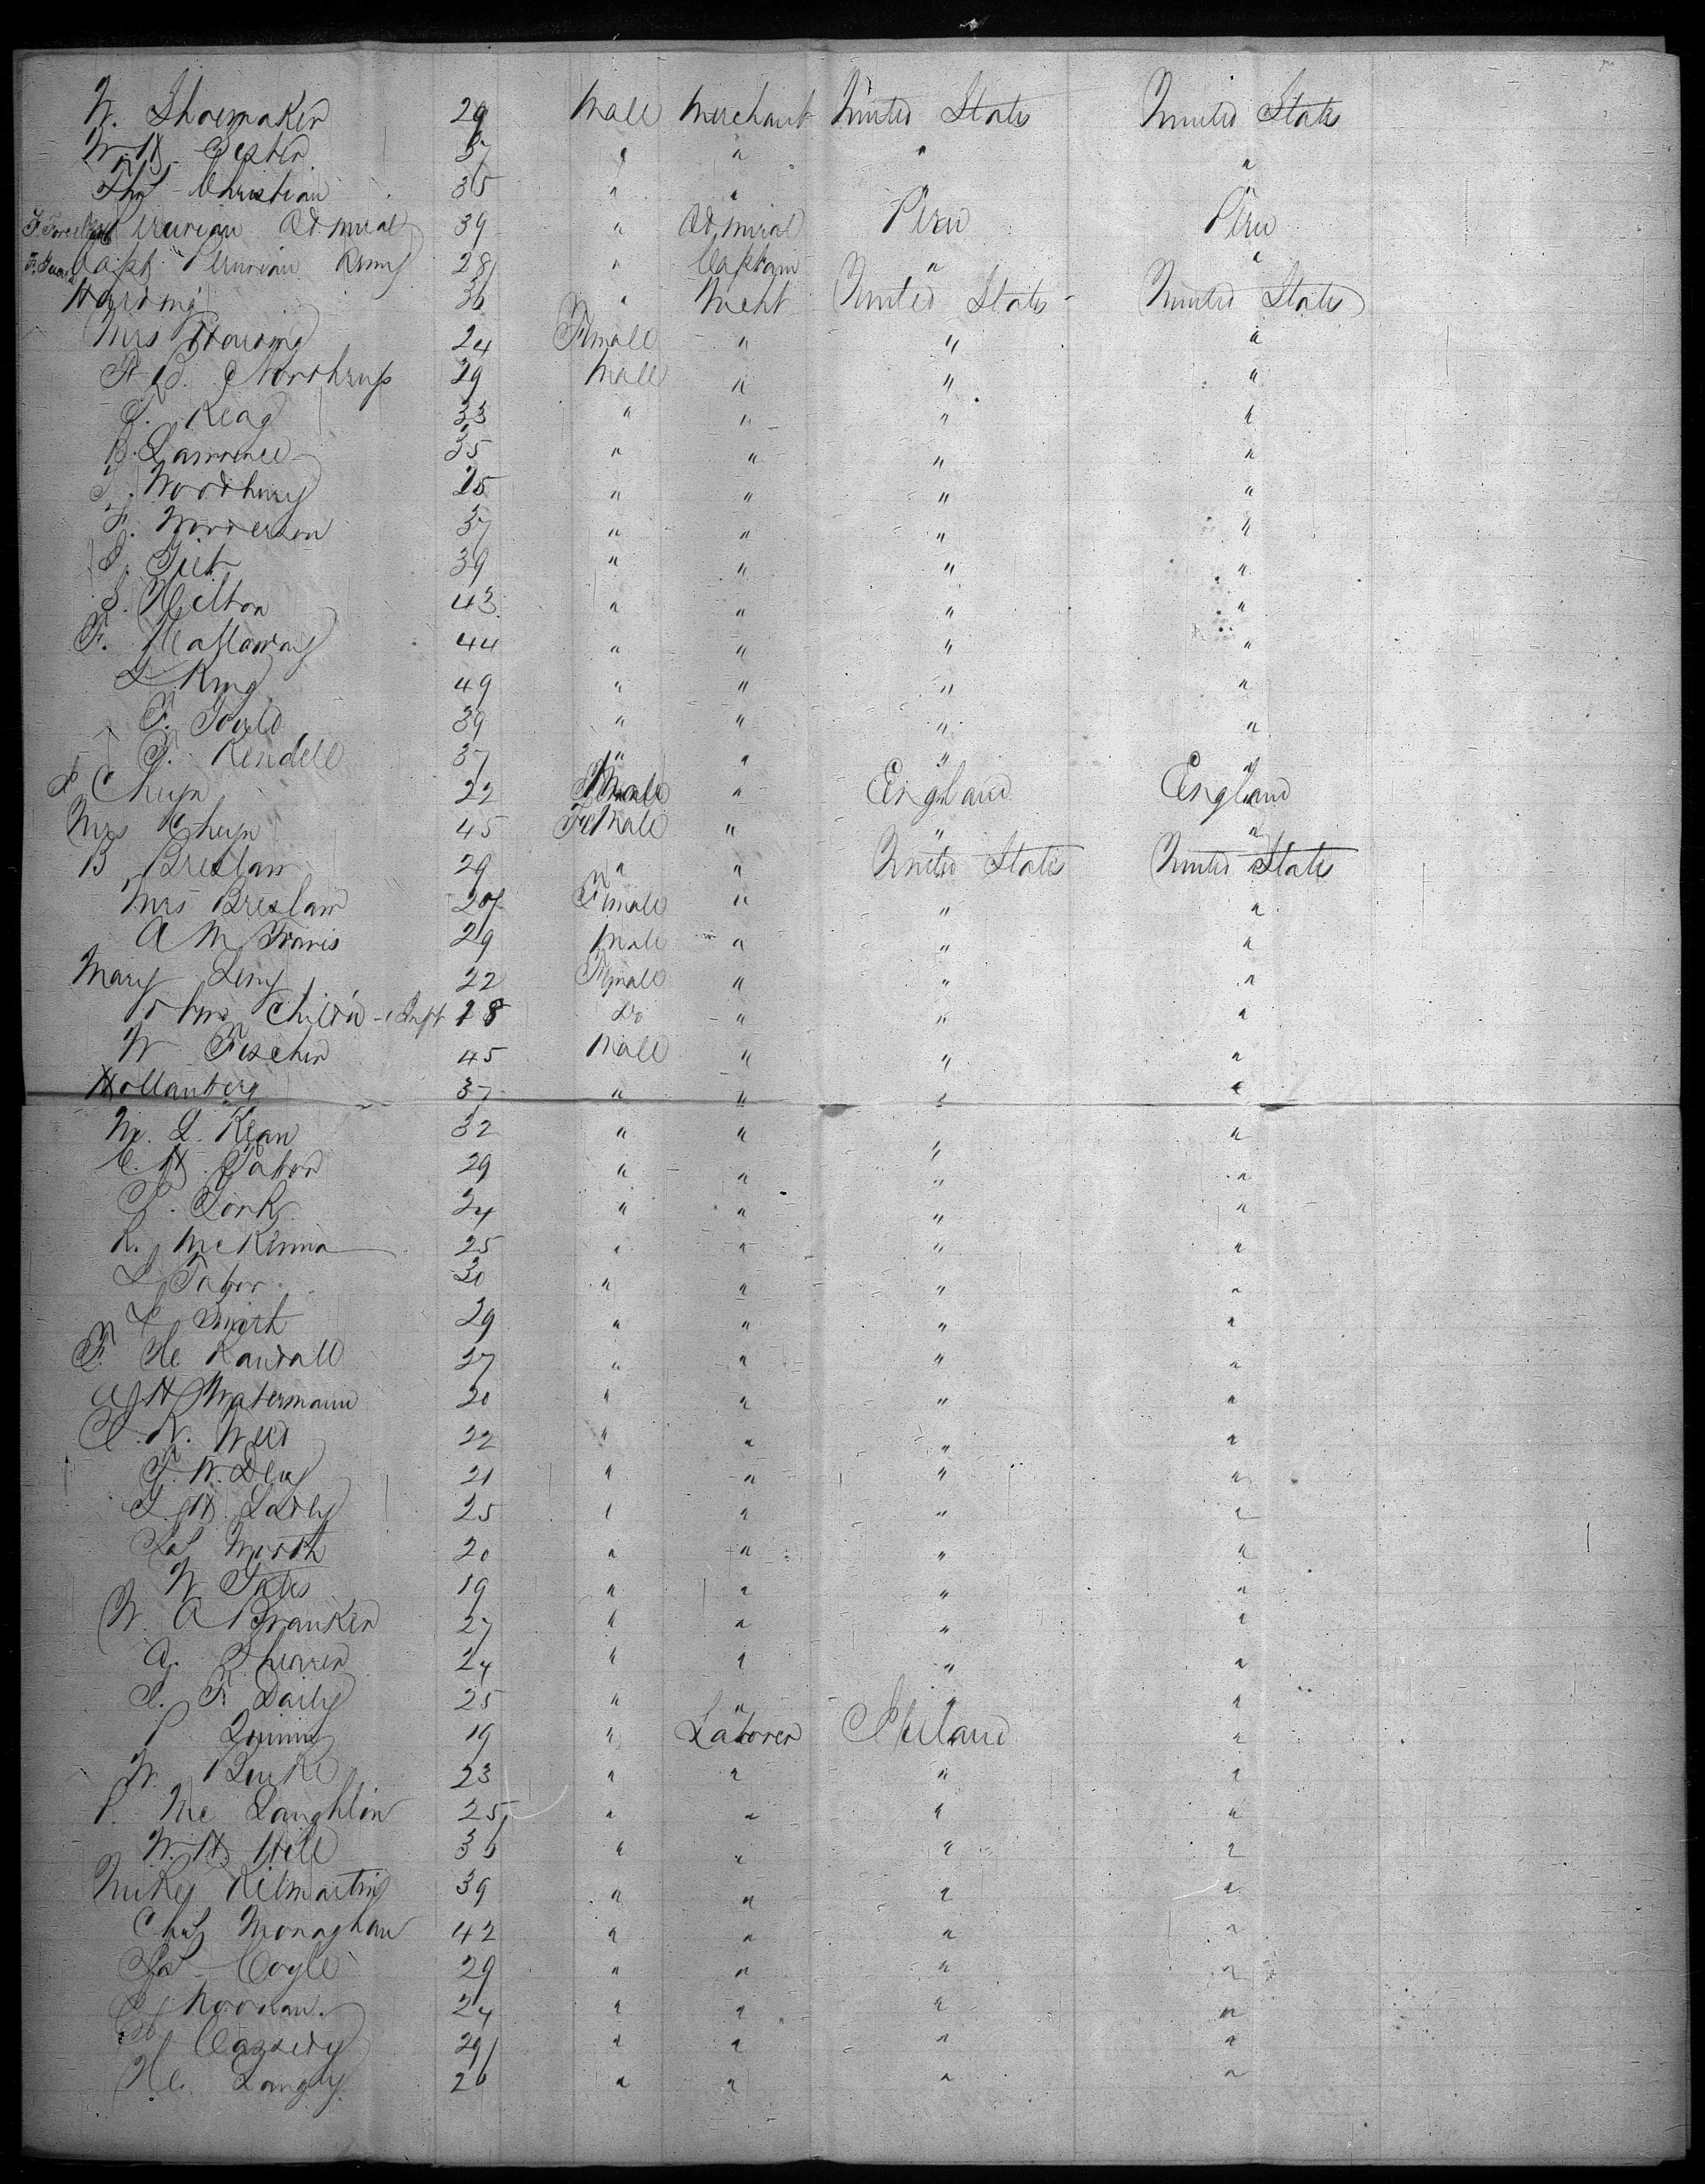 W. Shoemaker 29 Male Merchant United States United States
W H 37 " " " "
Thos Christian 35 " " " "
Peruvian Admiral 39 " Admiral Peru Peru
Capt Peruvian Army 28 " Captain " "
Harding 36 " Mcht United States United States
Mrs Harding 24 Female " " "
A B. Northrup 29 Male " " "
33 " " " "
B. Lawrence 35 " " " "
Woodbury 25 " " " "
37 " " " "
39 " " " "
S. Hilton 43 " " " "
F. Hallaway 44 " " " "
L King 49 " " " "
F. Gould 39 " " " "
T. Kendell 37 " " " "
22 Male " England England
Mrs 45 Female " " "
B Breslaw 29 " " United States United States
Mrs Breslaw 27 Female " " "
A M Travis 29 Male " " "
Mary Leny 22 Female " " "
Child 18 Do " " "
W Fischer 45 Male " " "
Hollanberg 37 " " " "
M. L. Kean 32 " " " "
C. H. Tabor 29 " " " "
24 " " " "
R. McKenna 25 " " " "
L Tabor 30 " " " "
L Smith 29 " " " "
F. He Randall 27 " " " "
A H Watermann 20 " " " "
W. Weed 22 " " " "
T. W. 21 " " " "
H. 25 " " " "
Jas Worth 20 " " " "
W Yates 19 " " " "
W. A Branker 27 " " " "
A. Shearer 24 " " " "
S. F. Daily 25 " " " "
P Quinny 19 " Laborer Ireland "
W. Burke 23 " " " "
P. Mc Laughlin 25 " " " "
W. H. Hill 36 " " " "
Mikey Kilmartin 39 " " " "
Chas Monaghan 42 " " " "
Jas Coyle 29 " " " "
Noonan. 24 " " " "
Cassidy 29 " " " "
He. Langly 26 " " " "